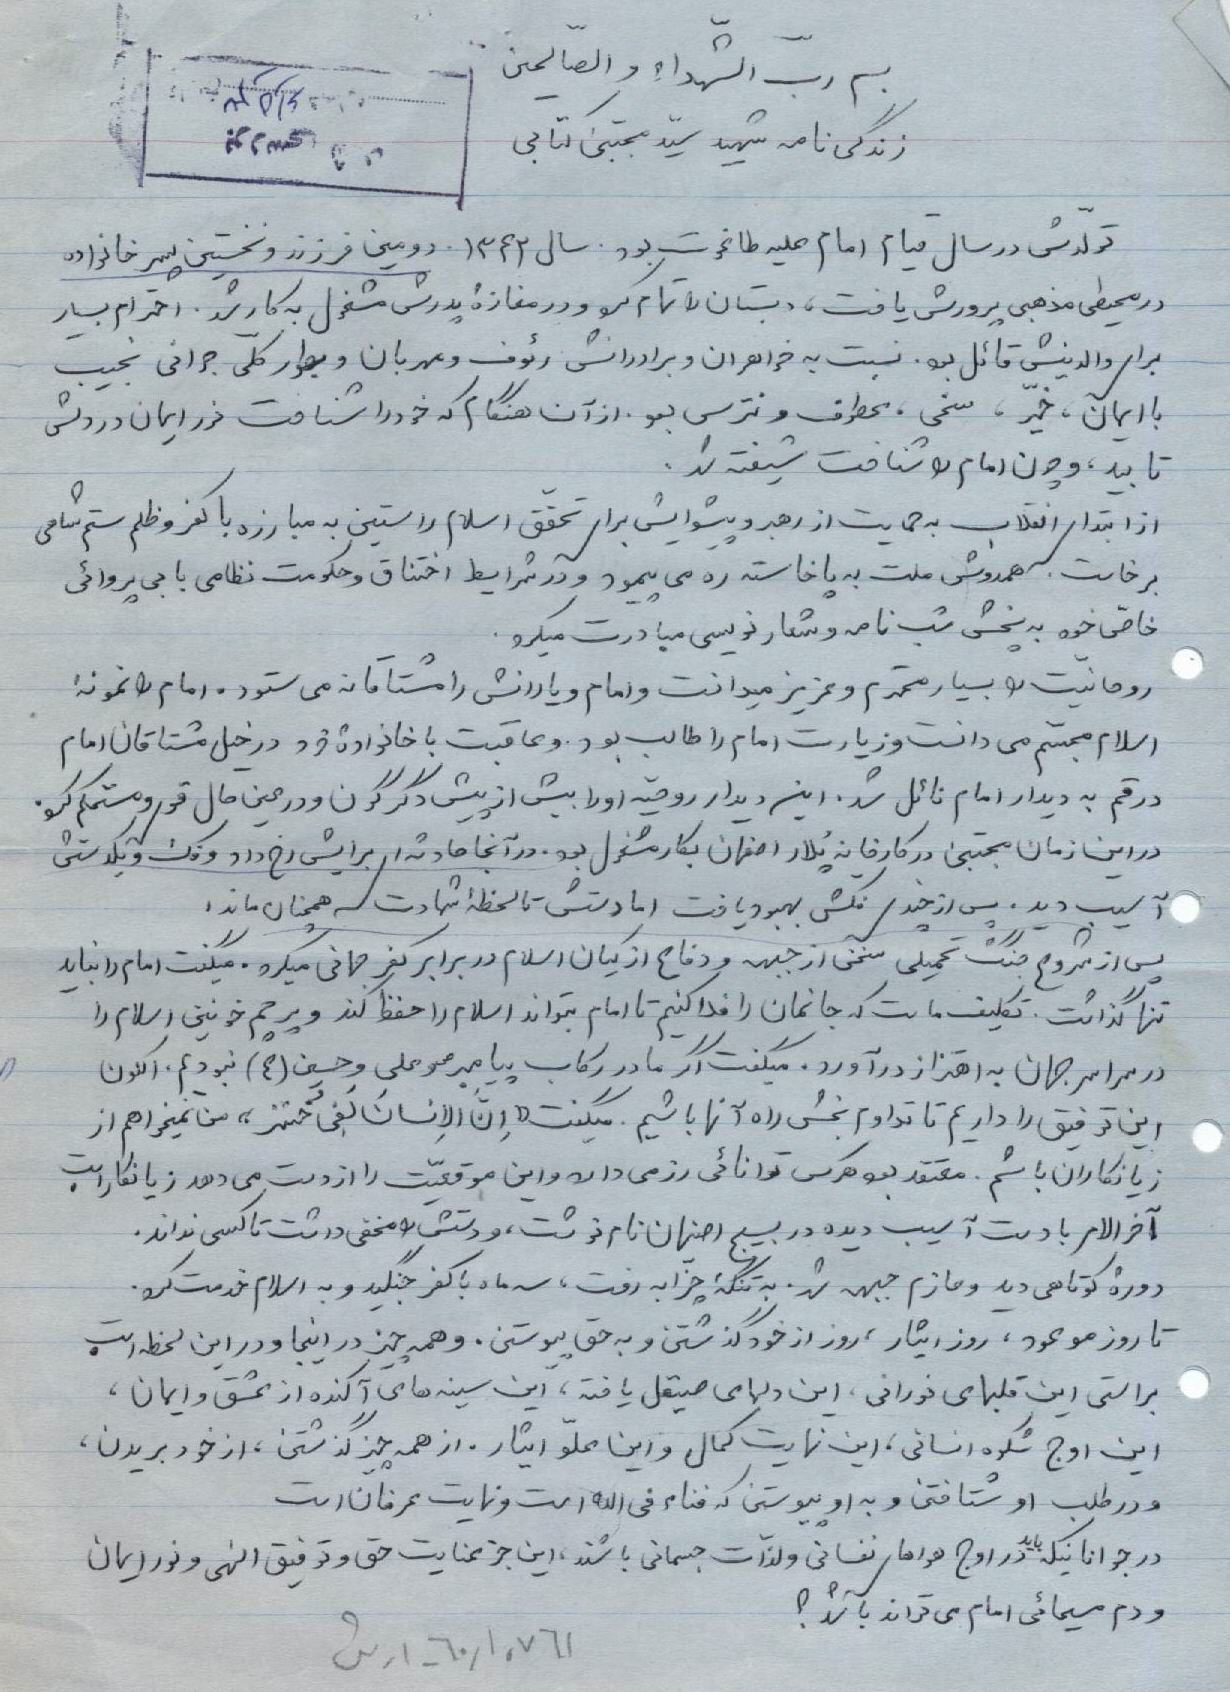 بسم ربّ الشّهداءِ و الصّالحین
زندگی نامه شهید سیّد مجتبی کتابی
تولّدش در سال قیام امام علیه طاغوت بود. سال ۱۳۴۲. دومین فرزند و نخستین پسر خانواده
در محیطی مذهبی پرورش یافت، دبستان را تمام کرد و در مغازهٔ پدرش مشغول به کار شد. احترام بسیار
برای والدینش قائل بود. نسبت به خواهران و برادرانش رئوف و مهربان و بطور کلّی جوانی نجیب
با ایمان، خیّر، سخی، عطوف و نترس بود. از آن هنگام که خود را شناخت نور ایمان در دلش
تابید، و چون امام را شناخت شیفته شد.
از ابتدای انقلاب به حمایت از رهبر و پیشوایش برای تحقّق اسلام راستین به مبارزه با کفر و ظلم ستم شاهی
برخاست. همدوش ملت به پا خاسته ره می پیمود و در شرایط اختناق و حکومت نظامی با بی پروائی
خاصّ خود به پخش شب نامه و شعار نویسی مبادرت میکرد.
روحانیّت را بسیار محترم و عزیز میدانست و امام و یارانش را مشتاقانه می ستود. امام را نمونهٔ
اسلام مجسّم می دانست و زیارت امام را طالب بود. و عاقبت با خانوادهٔ خود در خیل مشتاقان امام
در قم به دیدار امام نائل شد. این دیدار روحیّه او را بیش از پیش دگرگون و در عین حال قوی و مستحکم کرد.
در این زمان مجتبی در کارخانه پُلار اصفهان بکار مشغول بود. در آنجا حادثه ای برایش رخ داد و فک و یکدستش
آسیب دید. پس از چندی فکش بهبود یافت اما دستش تا لحظهٔ شهادت همچنان ماند!
پس از شروع جنگ تحمیلی سخن از جبهه و دفاع از کیان اسلام در برابر کفر جهانی میکرد. میگفت امام را نباید
تنها گذاشت. تکلیف ماست که جانمان را فدا کنیم تا امام بتواند اسلام را حفظ کند و پرچم خونین اسلام را
در سراسر جهان به اهتزاز درآورد. میگفت اگر ما در رکاب پیامبر و علی و حسین (ع) نبودیم. اکنون
این توفیق را داریم تا تداوم بخش راه آنها باشیم. میگفت «اِنَّ الاِنسانَ لَفی خُسر» من نمیخواهم از
زیانکاران باشم. معتقد بود هرکس توانائی رزمی دارد و این موقعیّت را از دست می دهد زیانکار است
آخرالامر با دست آسیب دیده در بسیج اصفهان نام نوشت، و دستش را مخفی داشت تا کسی نداند.
دورهٔ کوتاهی دید و عازم جبهه شد. به تنگهٔ چزّابه رفت، سه ماه با کفر جنگید و به اسلام خدمت کرد.
تا روز موعود، روز ایثار، روز از خود گذشتن و به حق پیوستن. و همه چیز در اینجا و در این لحظه است
براستی این قلبهای نورانی، این دلهای صیقل یافته، این سینه های آکنده از عشق و ایمان،
این اوج شکوه انسانی، این نهایت کمال و این علوّ ایثار. از همه چیز گذشتن، از خود بریدن،
و در طلب او شتافتن و به او پیوستن که فناء فی الله است و نهایت عرفان است
در جوانانیکه باید در اوج هواهای نفسانی و لذّات جسمانی باشند، این جز عنایت حق و توفیق الهی و نور ایمان
و دم مسیحائی امام می تواند باشد؟